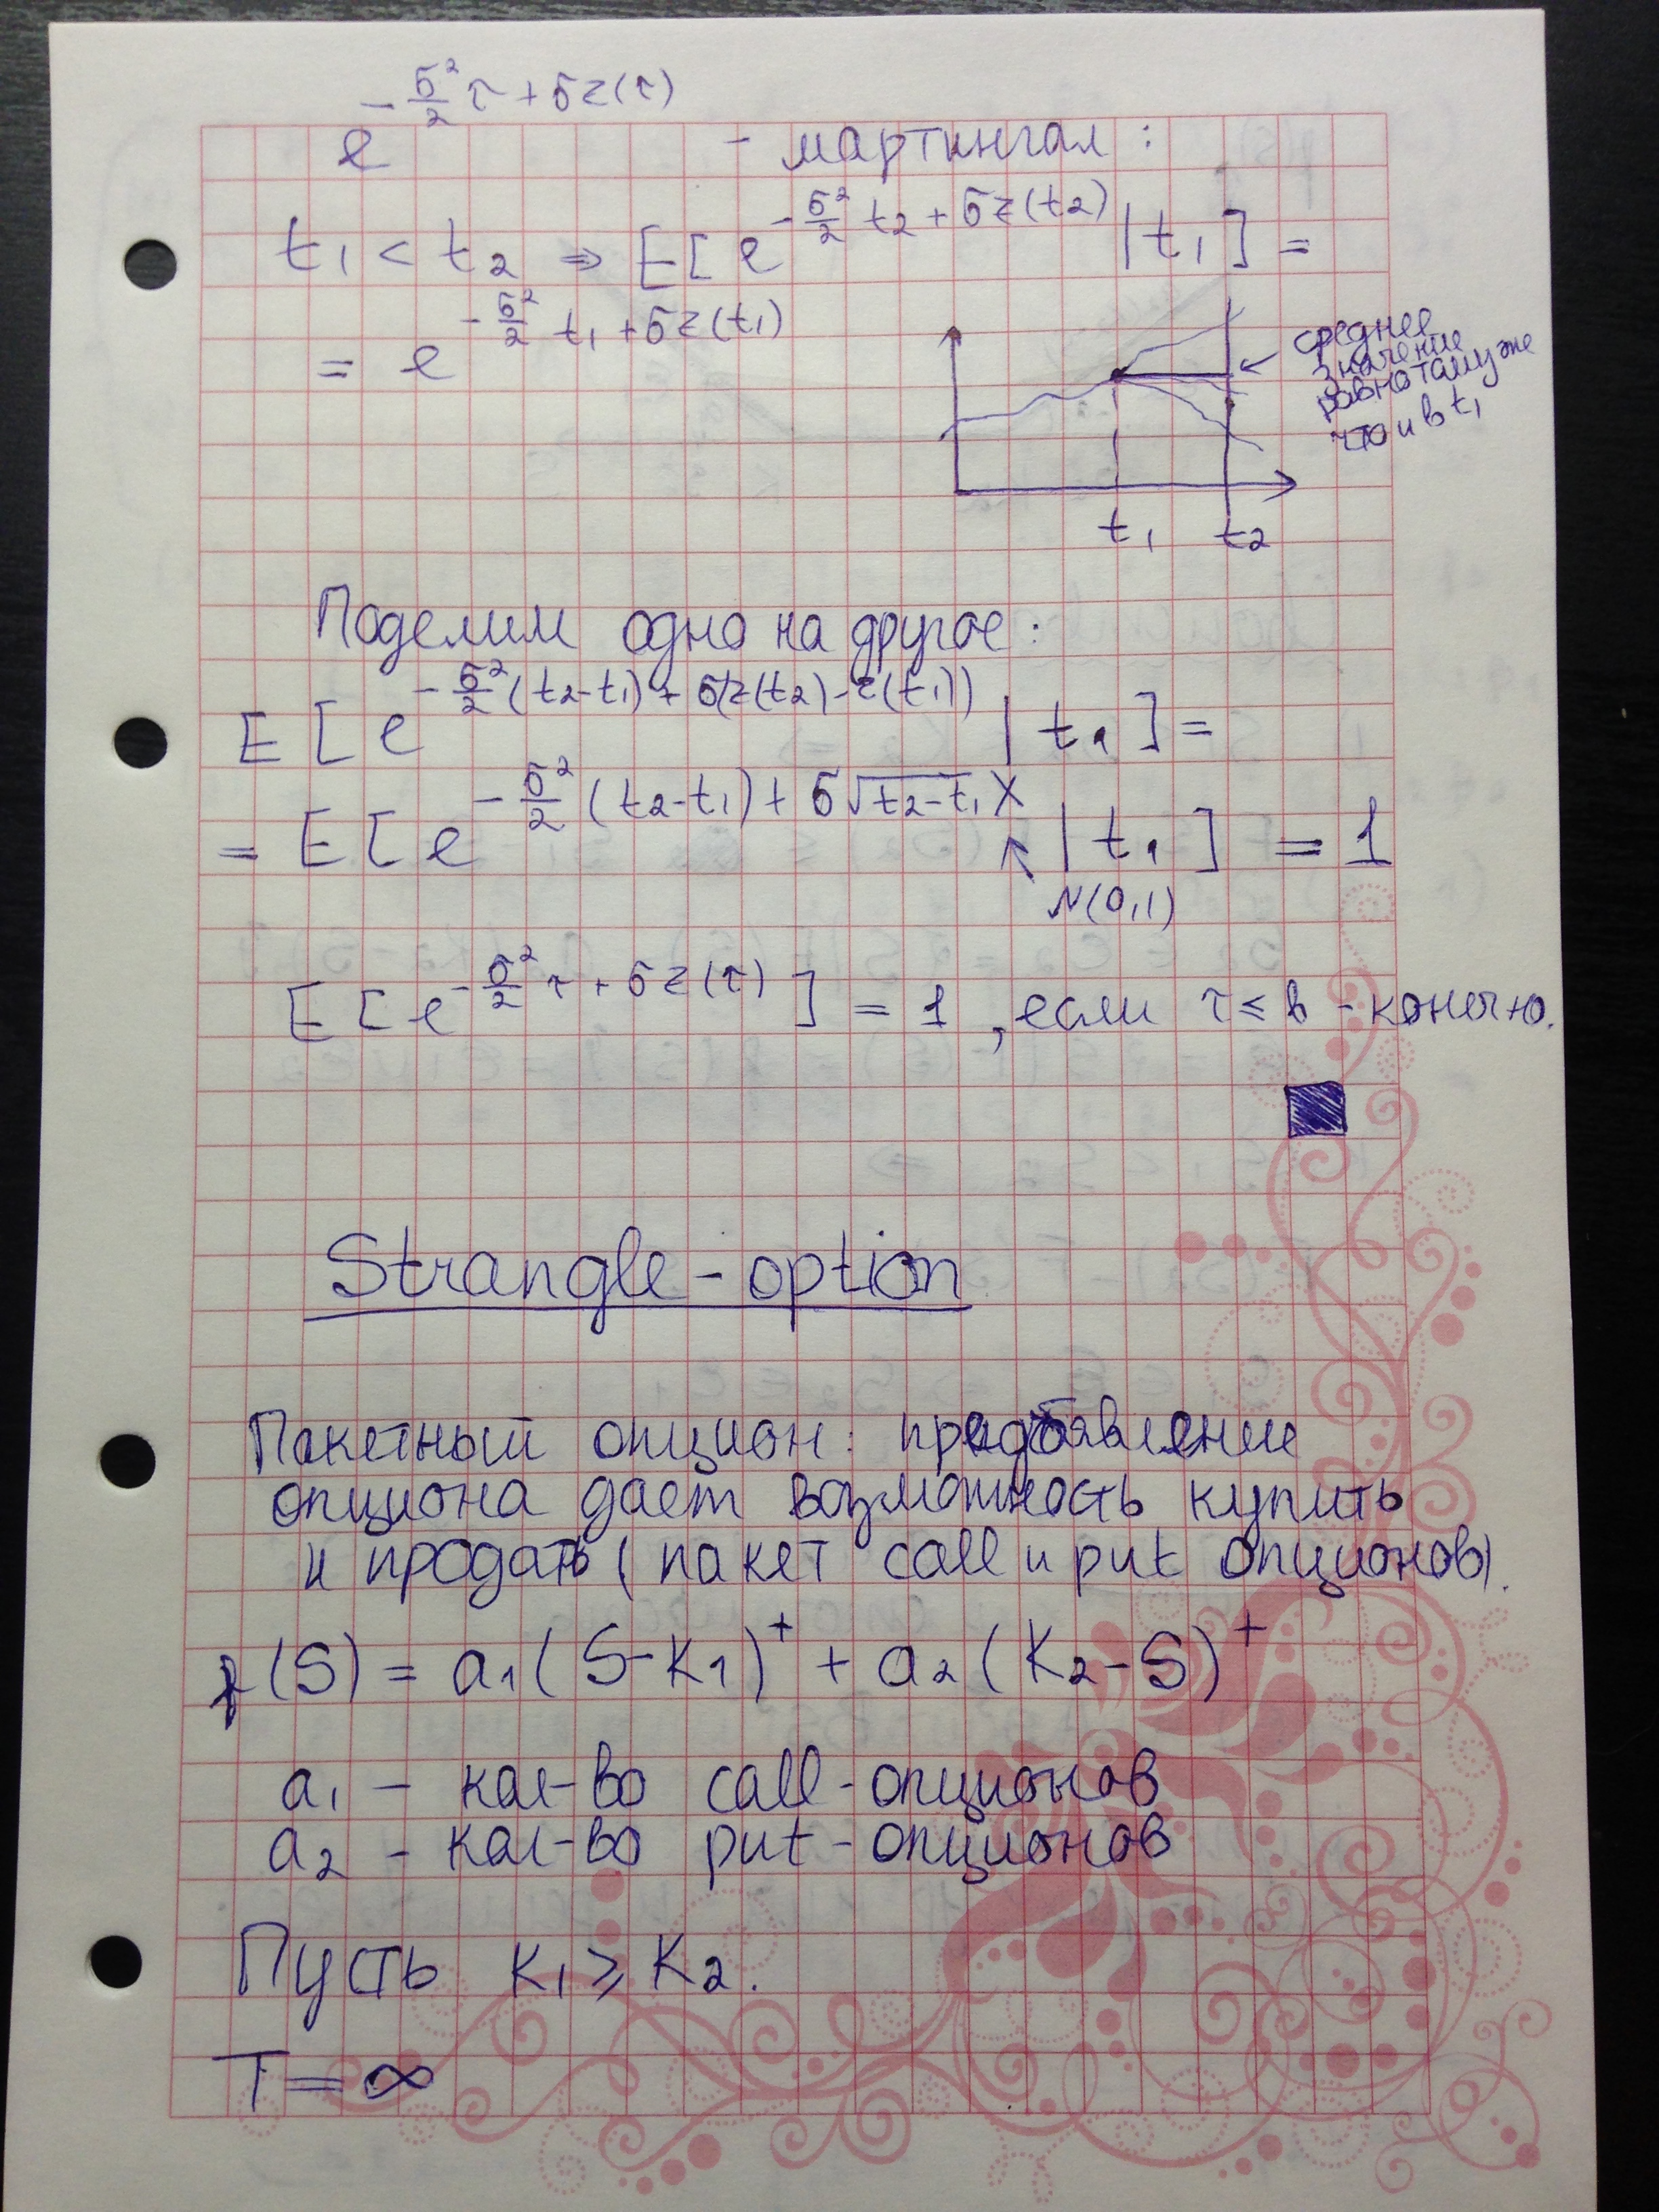 e^{-σ²/2 τ + σz(τ)} - мартингал:
t₁ < t₂ ⇒ E[e^{-σ²/2 t₂ + σz(t₂)} | t₁] =
= e^{-σ²/2 t₁ + σz(t₁)}
среднее
значение
равно тому же
что и в t₁
t₁ t₂
Поделим одно на другое:
E[e^{-σ²/2 (t₂-t₁) + σ(z(t₂) - z(t₁))} | t₁] =
= E[e^{-σ²/2 (t₂-t₁) + σ√(t₂-t₁) X} | t₁] = 1
N(0,1)
E[e^{-σ²/2 τ + σz(τ)}] = 1, если τ ≤ в - конечно.
Strangle-option
Пакетный опцион: предъявление
опциона дает возможность купить
и продать (пакет call и put опционов).
f(S) = a₁(S-K₁)⁺ + a₂(K₂-S)⁺
a₁ - кол-во call-опционов
a₂ - кол-во put-опционов
Пусть K₁ ≥ K₂.
T = ∞